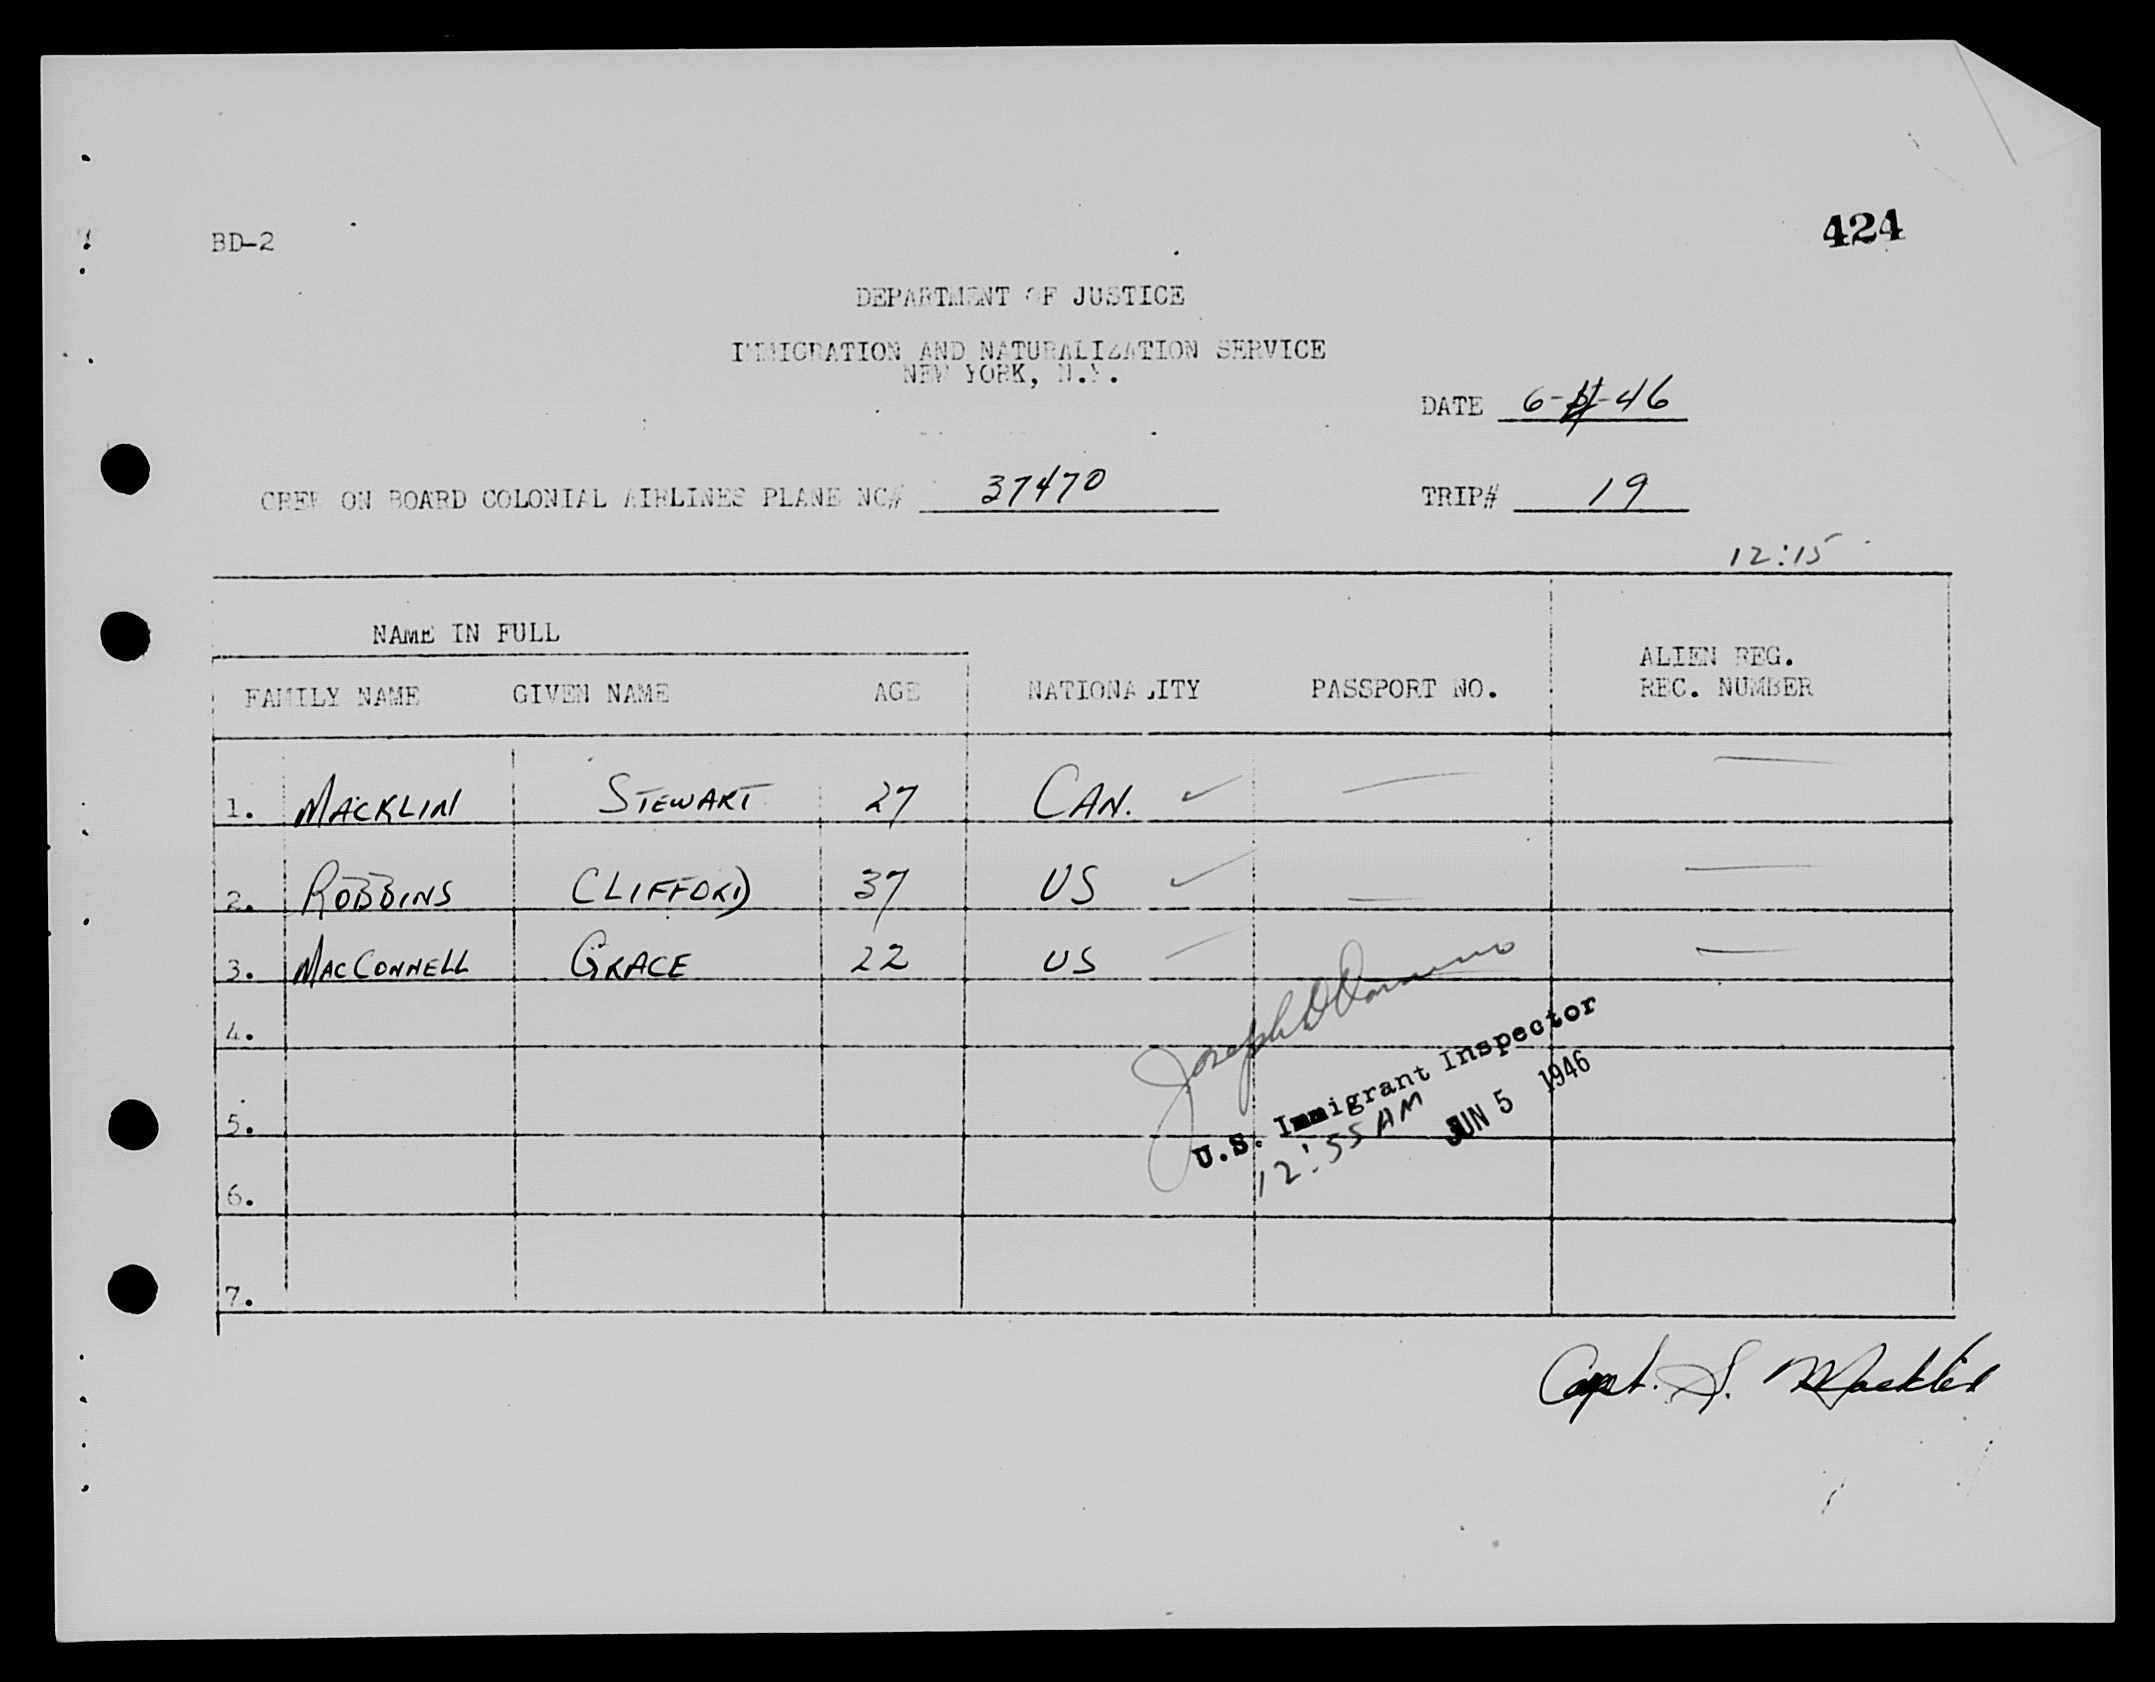 424
BD-2
DEPARTMENT OF JUSTICE
IMMIGRATION AND NATURALIZATION SERVICE
NEW YORK, N.Y.
DATE 6- -46
CREW ON BOARD COLONIAL AIRLINES PLANE NC# 37470 TRIP# 19
12:15
NAME IN FULL
ALIEN REG.
FAMILY NAME GIVEN NAME AGE NATIONALITY PASSPORT NO. REC. NUMBER
1. MACKLIN STEWART 27 CAN. ✓ — —
2. ROBBINS CLIFFORD 37 US ✓ — —
3. MACCONNELL GRACE 22 US — —
4.
Joseph D
U.S. Immigrant Inspector
5.
12:55 AM JUN 5 1946
6.
7.
Capt. S. Macklin